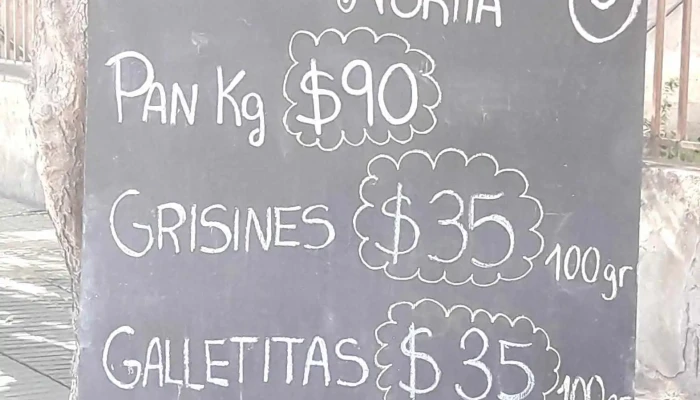 Norma
PAN Kg $90
GRISINES $35 100gr
GALLETITAS $35 100gr